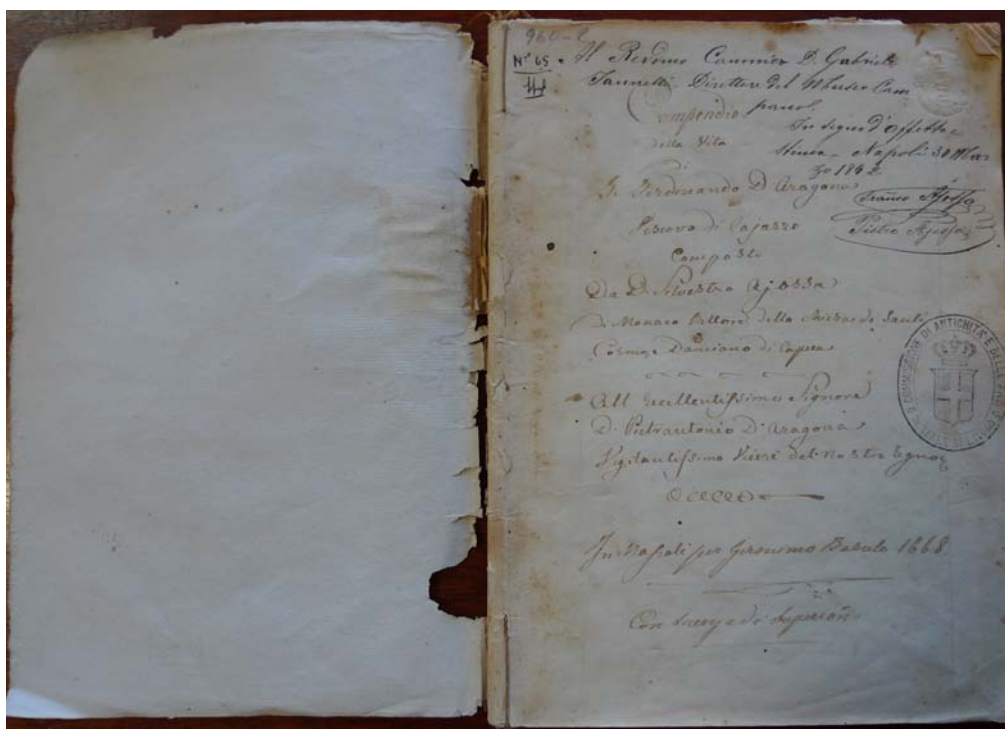 960-2
N° 65
Al Revdmo Canonico D. Gabriele
Iannelli Direttore del Museo Cam
pano.
In segno d'affetto e
stima - Napoli 30 Mar
zo 1892
Pietro Ajossa
Compendio
della Vita
di
Ferdinando D'Aragona
Vescovo di Cajazzo
Composto
Da D. Silvestro Ajossa
di Monaco Rettore della Chiesa de Santi
Cosma e Damiano di Capua
All Eccellentissimo Signore
D. Pietrantonio D'Aragona
Vigilantissimo Vicerè del nostro Regno
In Napoli per Geronimo Fasulo 1668
Con licenza de' Superiori
COMMISSIONE DI ANTICHITÀ E BELLE ARTI